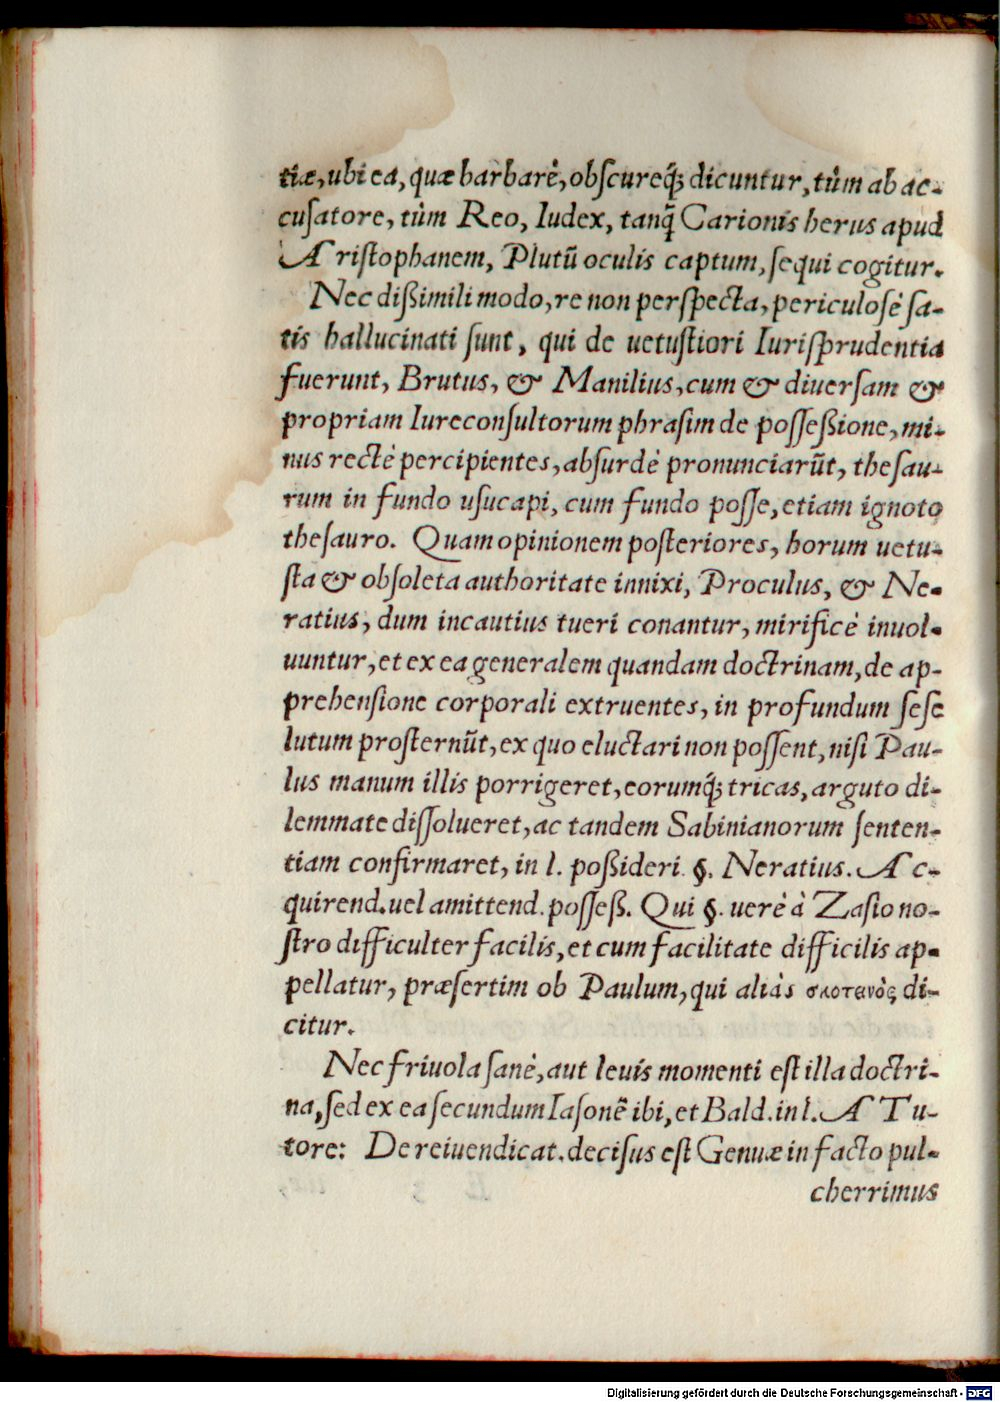 tiæ, ubi ea, quæ barbarè, obscureq́; dicuntur, tùm ab ac-
cusatore, tùm Reo, Iudex, tanq̃ Carionis herus apud
Aristophanem, Plutũ oculis captum, sequi cogitur.
Nec dißimili modo, re non perspecta, periculosè sa-
tis hallucinati sunt, qui de uetustiori Iurisprudentia
fuerunt, Brutus, & Manilius, cum & diuersam &
propriam Iureconsultorum phrasim de posseßione, mi-
nus rectè percipientes, absurdè pronunciarũt, thesau-
rum in fundo usucapi, cum fundo posse, etiam ignoto
thesauro. Quam opinionem posteriores, horum uetu-
sta & obsoleta authoritate innixi, Proculus, & Ne-
ratius, dum incautius tueri conantur, mirificè inuol-
uuntur, et ex ea generalem quandam doctrinam, de ap-
prehensione corporali extruentes, in profundum sese
lutum prosternũt, ex quo eluctari non possent, nisi Pau-
lus manum illis porrigeret, eorumq́; tricas, arguto di-
lemmate dissolueret, ac tandem Sabinianorum senten-
tiam confirmaret, in l. poßideri. §. Neratius. Ac-
quirend. uel amittend. posseß. Qui §. uerè à Zasio no-
stro difficulter facilis, et cum facilitate difficilis ap-
pellatur, præsertim ob Paulum, qui aliàs σκοτεινὸς di-
citur.
Nec friuola sanè, aut leuis momenti est illa doctri-
na, sed ex ea secundum Iasonẽ ibi, et Bald. in l. A Tu-
tore: De rei uendicat. decisus est Genuæ in facto pul-
cherrimus
Digitalisierung gefördert durch die Deutsche Forschungsgemeinschaft - DFG